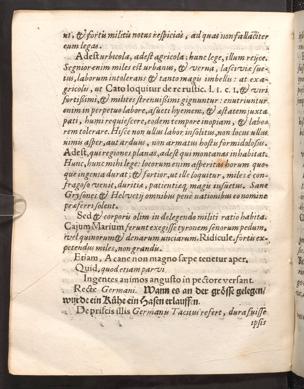 us, & fortis militis notas inspicias, ad quas non fallaciter
eum legas.
Adest urbicola, adest agricola: hunc lege, illum rejice.
Segnior enim miles est urbanus, & verna, lascivia sue-
tus, laborum intolerans & tanto magis imbellis: at ex a-
gricolis, ut Cato loquitur de re rustic. l. 1. c. 1, & viri
fortissimi, & milites strenuissimi gignuntur: enutriuntur
enim in perpetuo labore, assueti hyemem, & æstatem juxta
pati, humi requiescere, eodem tempore inopiam, & labo-
rem tolerare. Hisce non ullus labor insolitus, non locus ullus
nimis asper, aut arduus, non armatus hostis formidolosus.
Adest, qui regiones planas, adest qui montanas inhabitat.
Hunc, hunc mihi lege: locorum enim asperitas horum quo-
que ingenia durat, & fortior, ut elle loquitur, miles è con-
fragoso venit, duritia, patientiaq; magis insuetus. Sane
Grysones & Helvetij omnibus pene nationibus eo nomine
præferri solent.
Sed & corporis olim in delegendo militi ratio habita.
Cajum Marium ferunt exegisse tyronem senorum pedum,
vel quinorum & denarum unciarum. Ridicule. fortis ex-
petendus miles, non grandis.
Etiam. A cane non magno sæpe tenetur aper.
Quid, quod etiam parvi.
Ingentes animos angusto in pectore versant.
Recte Germani. Wann es an der grösse gelegen/
wurde ein Kühe ein Hasen erlauffen.
De priscis illis Germanis Tacitus refert, dura fuisse
ipsis